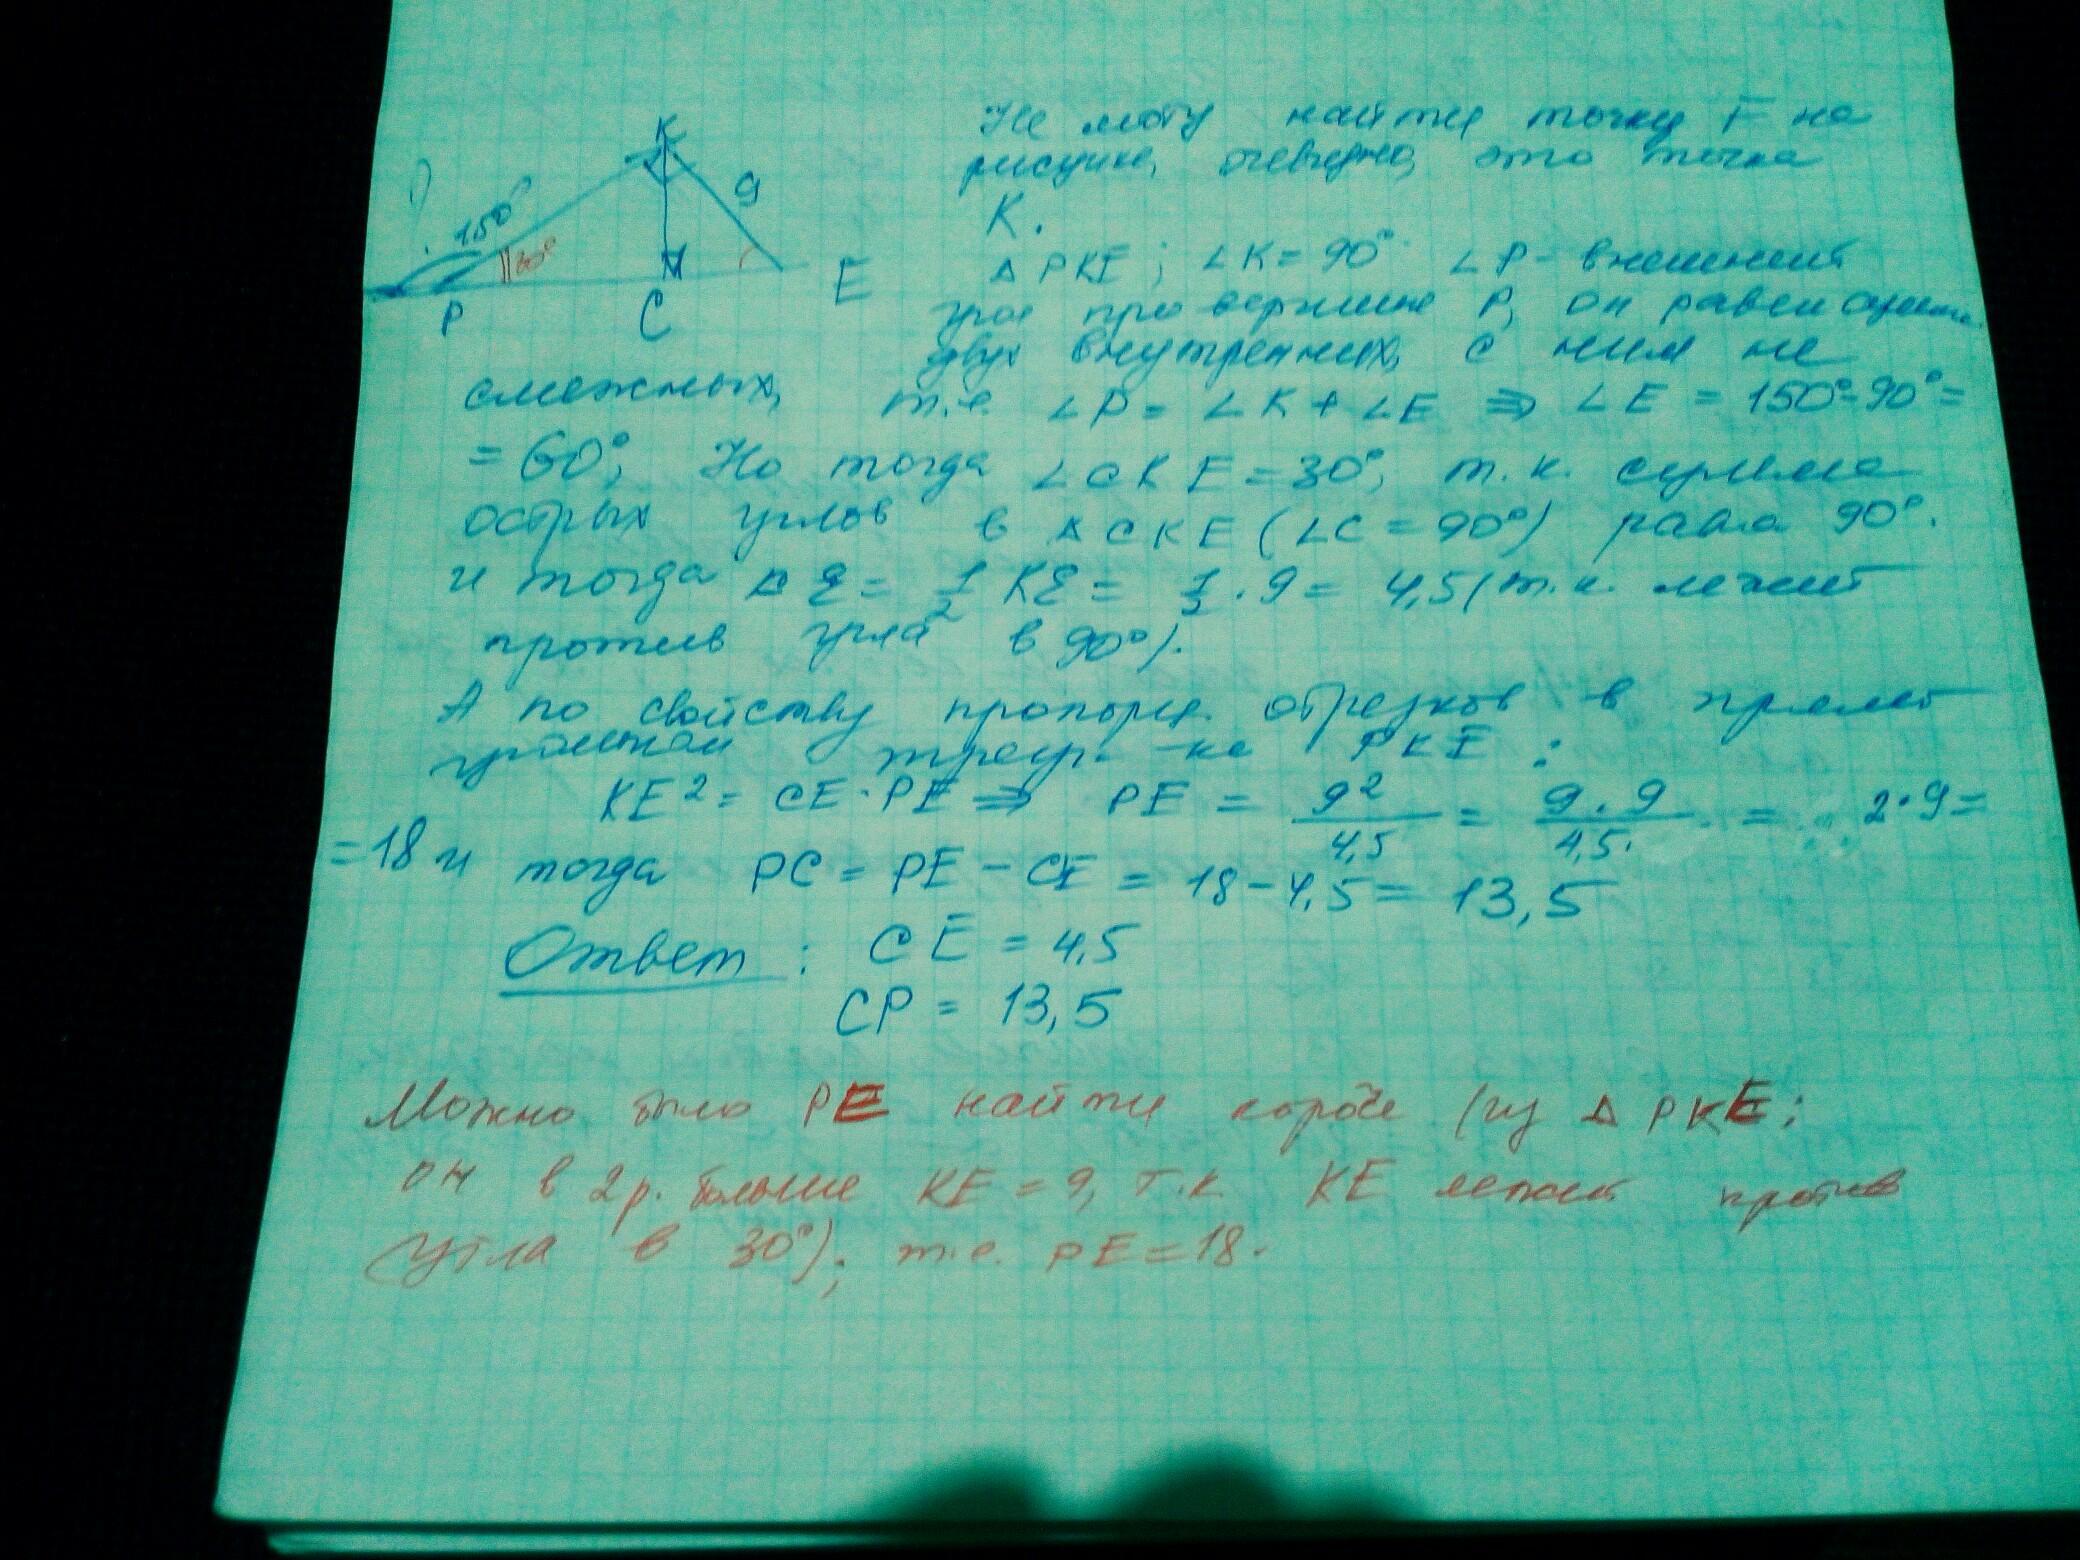 K
9
150°
30°
P
C
E
Не могу найти точку F на
рисунке, очевидно, это точка
K.
∆ PKE; ∠K = 90° ∠P - внешний
угол при вершине P, он равен сумме
двух внутренних, с ним не
смежных, т.е. ∠P = ∠K + ∠E ⇒ ∠E = 150° - 90° =
= 60°; Но тогда ∠CKE = 30°, т.к. сумма
острых углов в ∆ CKE (∠C = 90°) равна 90°.
и тогда CE = 1/2 KE = 1/2 · 9 = 4,5 (т.к. лежит
против угла в 90°).
А по свойству пропорц. отрезков в прямо
угольном треуг-ке PKE:
KE² = CE · PE ⇒ PE = 9²/4,5 = 9·9/4,5 = 2·9 =
= 18 и тогда PC = PE - CE = 18 - 4,5 = 13,5
Ответ: CE = 4,5
CP = 13,5
Можно было PE найти короче (из ∆ PKE;
он в 2 р. больше KE = 9, т.к. KE лежит против
угла в 30°); т.е. PE = 18.